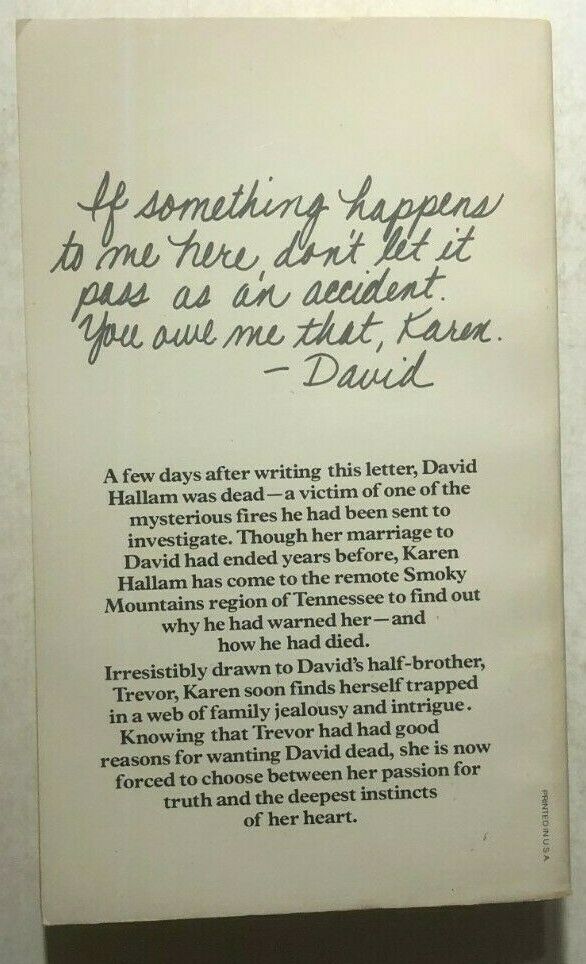 If something happens
to me here, don't let it
pass as an accident.
You owe me that, Karen.
— David
A few days after writing this letter, David
Hallam was dead—a victim of one of the
mysterious fires he had been sent to
investigate. Though her marriage to
David had ended years before, Karen
Hallam has come to the remote Smoky
Mountains region of Tennessee to find out
why he had warned her—and
how he had died.
Irresistibly drawn to David's half-brother,
Trevor, Karen soon finds herself trapped
in a web of family jealousy and intrigue.
Knowing that Trevor had had good
reasons for wanting David dead, she is now
forced to choose between her passion for
truth and the deepest instincts
of her heart.
PRINTED IN U.S.A.